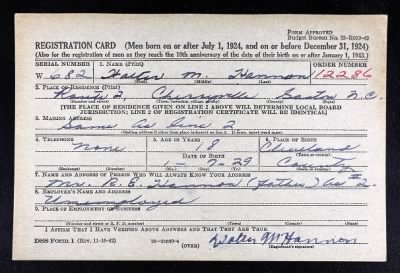 FORM APPROVED
Budget Bureau No. 33-R012-42
REGISTRATION CARD (Men born on or after July 1, 1924, and on or before December 31, 1924)
(Also for the registration of men as they reach the 18th anniversary of the date of their birth on or after January 1, 1943.)
SERIAL NUMBER 1. NAME (Print) ORDER NUMBER
W 682 Walter M. Hannon 12286
(First) (Middle) (Last)
2. PLACE OF RESIDENCE (Print)
Route 2, Cherryville Gaston N.C.
[THE PLACE OF RESIDENCE GIVEN ON LINE 2 ABOVE WILL DETERMINE LOCAL BOARD
JURISDICTION; LINE 2 OF REGISTRATION CERTIFICATE WILL BE IDENTICAL]
3. MAILING ADDRESS
Same as line 2
4. TELEPHONE 5. AGE IN YEARS 6. PLACE OF BIRTH
None 18 Cleveland
DATE OF BIRTH
County
7. NAME AND ADDRESS OF PERSON WHO WILL ALWAYS KNOW YOUR ADDRESS
Mr. R. E. Hannon (Father) as #2
8. EMPLOYER'S NAME AND ADDRESS
Unemployed
9. PLACE OF EMPLOYMENT OR BUSINESS
I AFFIRM THAT I HAVE VERIFIED ABOVE ANSWERS AND THAT THEY ARE TRUE.
DSS Form 1 (Rev. 11-16-42) (OVER) Walter M Hannon
(Registrant's signature)